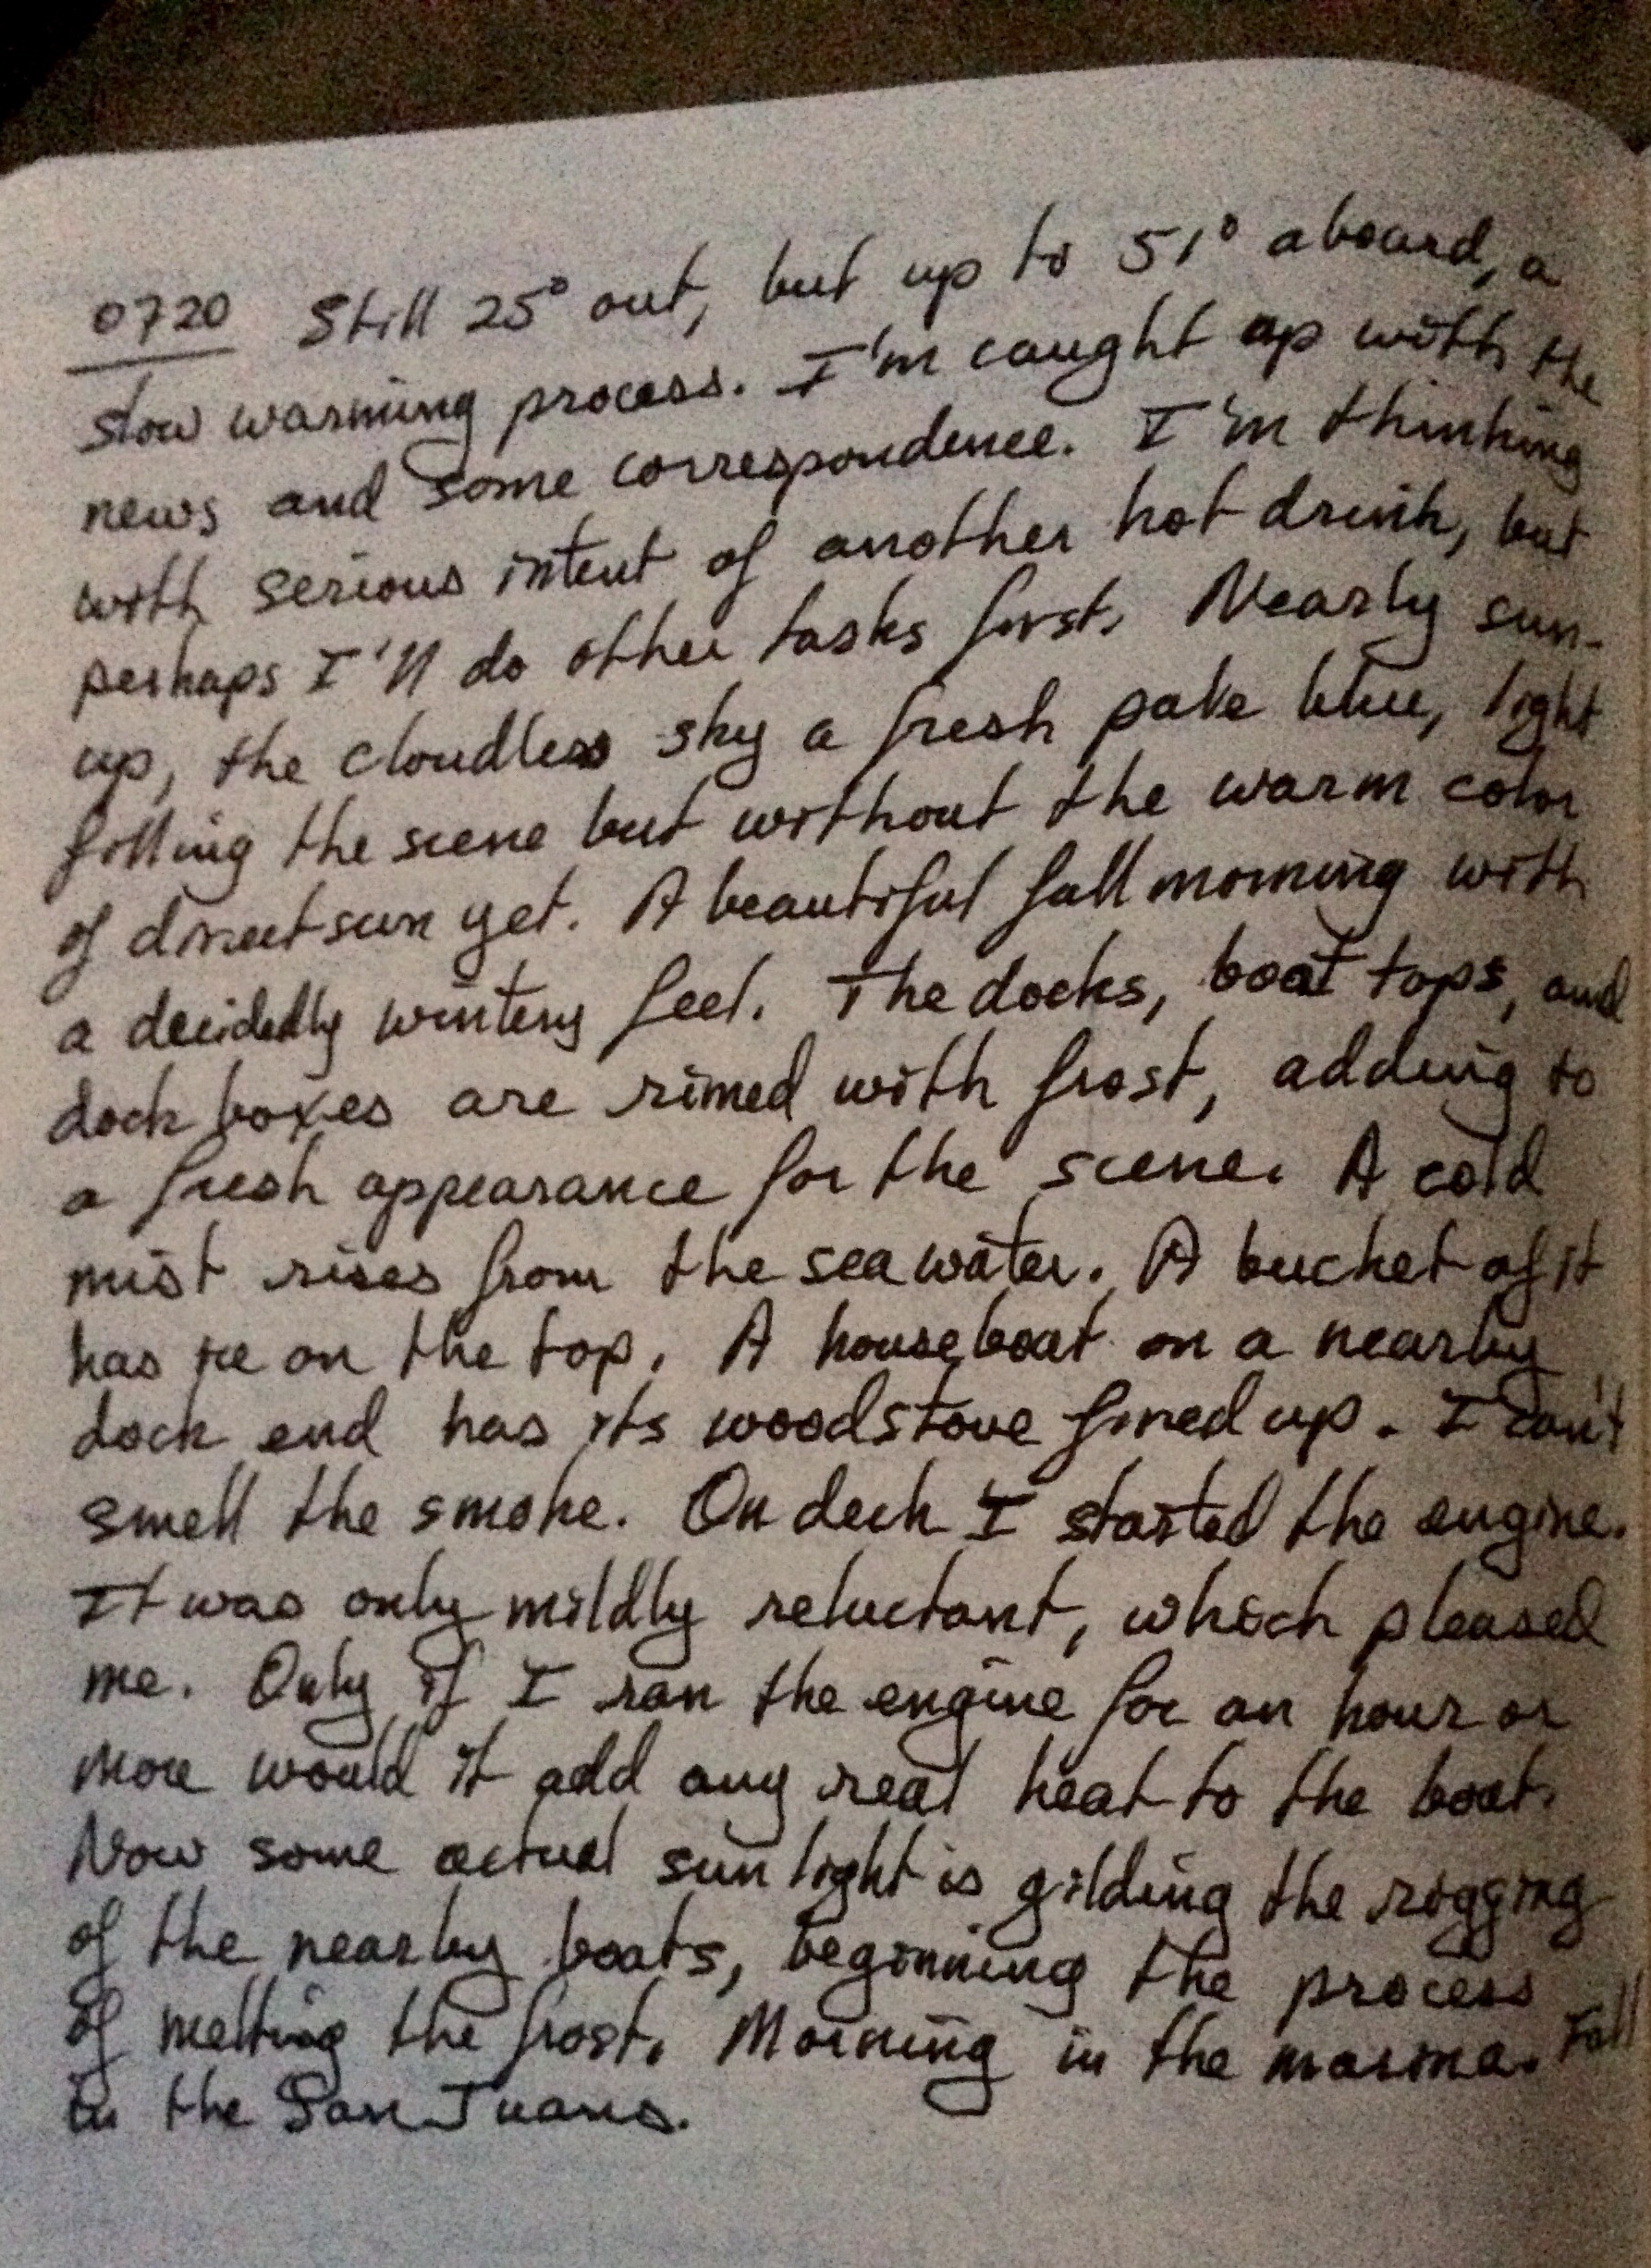 0720 Still 25° out, but up to 51° aboard, a
slow warming process. I'm caught up with the
news and some correspondence. I'm thinking
with serious intent of another hot drink, but
perhaps I'll do other tasks first. Nearly sun-
up, the cloudless sky a fresh pale blue, light
filling the scene but without the warm color
of direct sun yet. A beautiful fall morning with
a decidedly wintery feel. The docks, boat tops, and
dock boxes are rimed with frost, adding to
a fresh appearance for the scene. A cold
mist rises from the sea water. A bucket of it
has ice on the top. A houseboat on a nearby
dock end has its woodstove fired up. I can't
smell the smoke. On deck I started the engine.
It was only mildly reluctant, which pleased
me. Only if I ran the engine for an hour or
more would it add any real heat to the boat.
Now some actual sunlight is gilding the rigging
of the nearby boats, beginning the process
of melting the frost. Morning in the marina. Fall
in the San Juans.